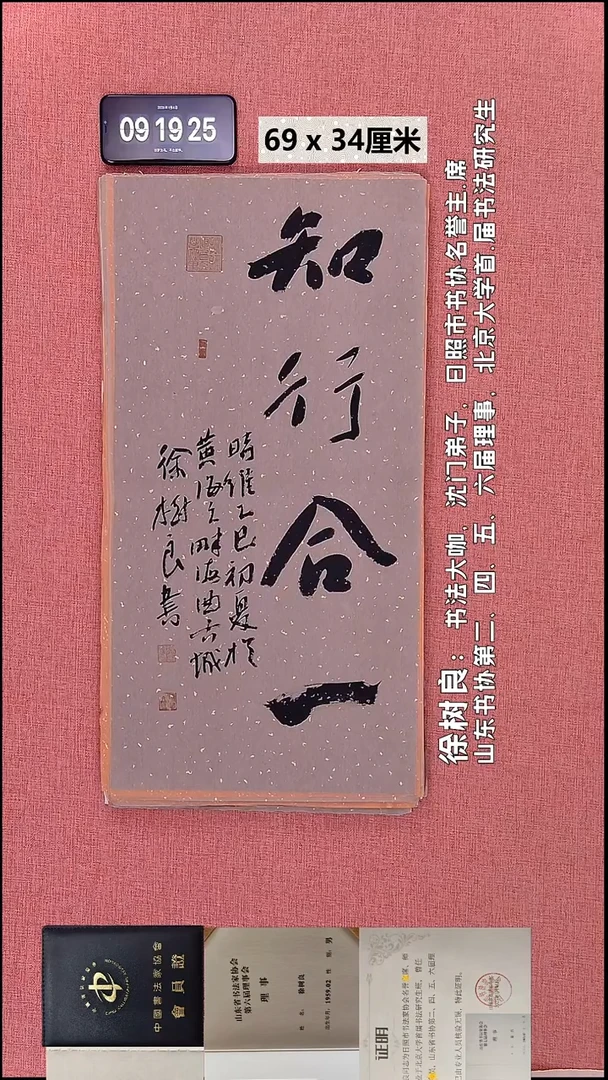 09 19 25
69 x 34厘米
知行合一
時維乙巳初夏於
黄海之畔海曲古城
徐樹良書
徐树良：书法大咖，沈门弟子，日照市书协名誉主席
山东书协第二、四、五、六届理事，北京大学首届书法研究生
中國書法家協會
會員證
山东省书法家协会
第六届理事会
理事
姓名：徐树良
性别：男
出生年月：1959.02
证明